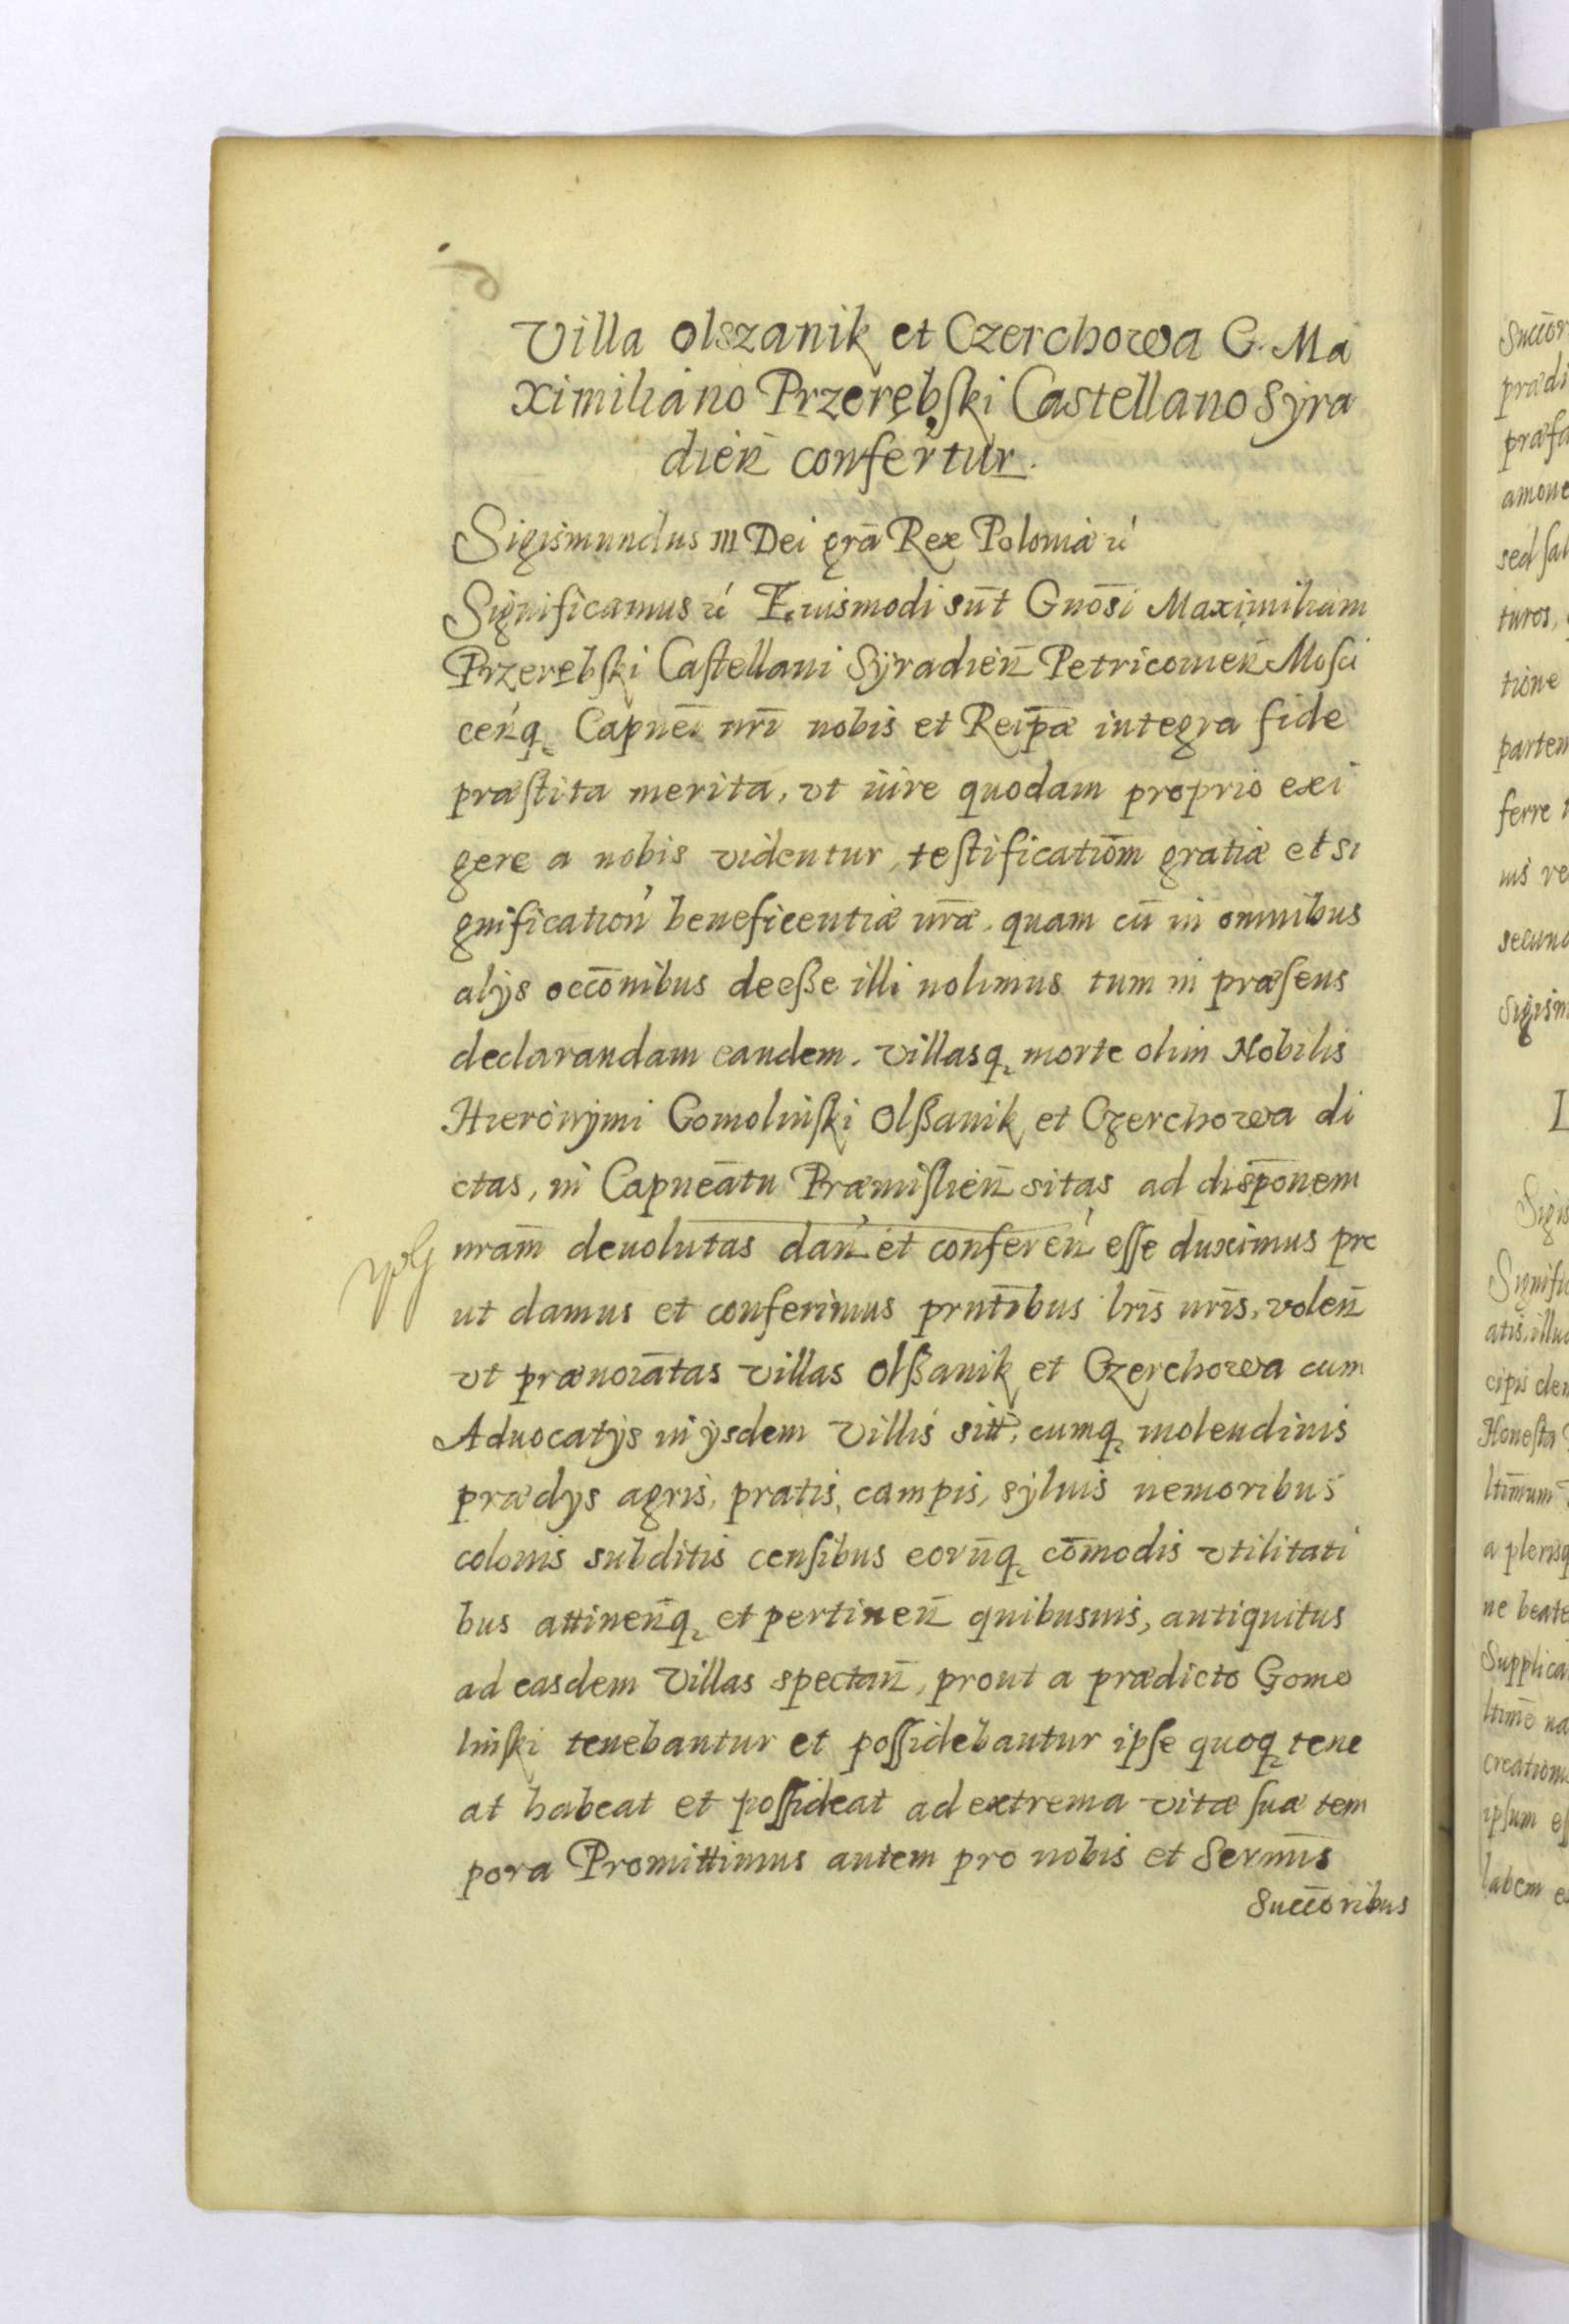 Villa Olszanik et Czerchowa G. Ma
ximiliano Przerębski Castellano Syra
dien̄ confertur.
Sigismundus III Dei grā Rex Poloniæ
Significamus Eiusmodi sūt Gnōsi Maximiliani
Przerębſki Caſtellani Sÿradien̄ Petricouien̄ Moſci
cen̄q Capnēi nr̄i nobis et Reip̄æ integra fide
præſtita merita, vt iure quodam proprio exi
gere a nobis videntur, teſtificatiōm gratiæ et si
gnification̄ beneficentiæ nr̄æ, quam cū in omnibus
alÿs occōnibus deeße illi nolimus tum in præſens
declarandam eandem. villasq morte olim Nobilis
Hieronÿmi Gomolinſki Olßanik et Czerchowa di
ctas, in Capneātu Præmiſlien̄ sitas ad dispōnem
nram̄ deuolutas dan̄ et conferen̄ eſſe duximus pro
ut damus et conferimus prntībus lrīs nrīs, volen̄
vt prænoiātas villas Olßanik et Czerchowa cum
Aduocatÿs in ÿsdem Villis sitt, cumq molendinis
prædÿs agris, pratis, campis, sÿluis nemoribus
colonis subditis cenſibus eorūq cōmodis vtilitati
bus attinen̄q et pertinen̄ quibusuis, antiquitus
ad easdem Villas spectan̄, prout a prædicto Gomo
linſki tenebantur et poſſidebantur ipſe quoq tene
at habeat et poſſideat ad extrema vitæ ſuæ tem
pora Promittimus autem pro nobis et Sermīs
Succōribus